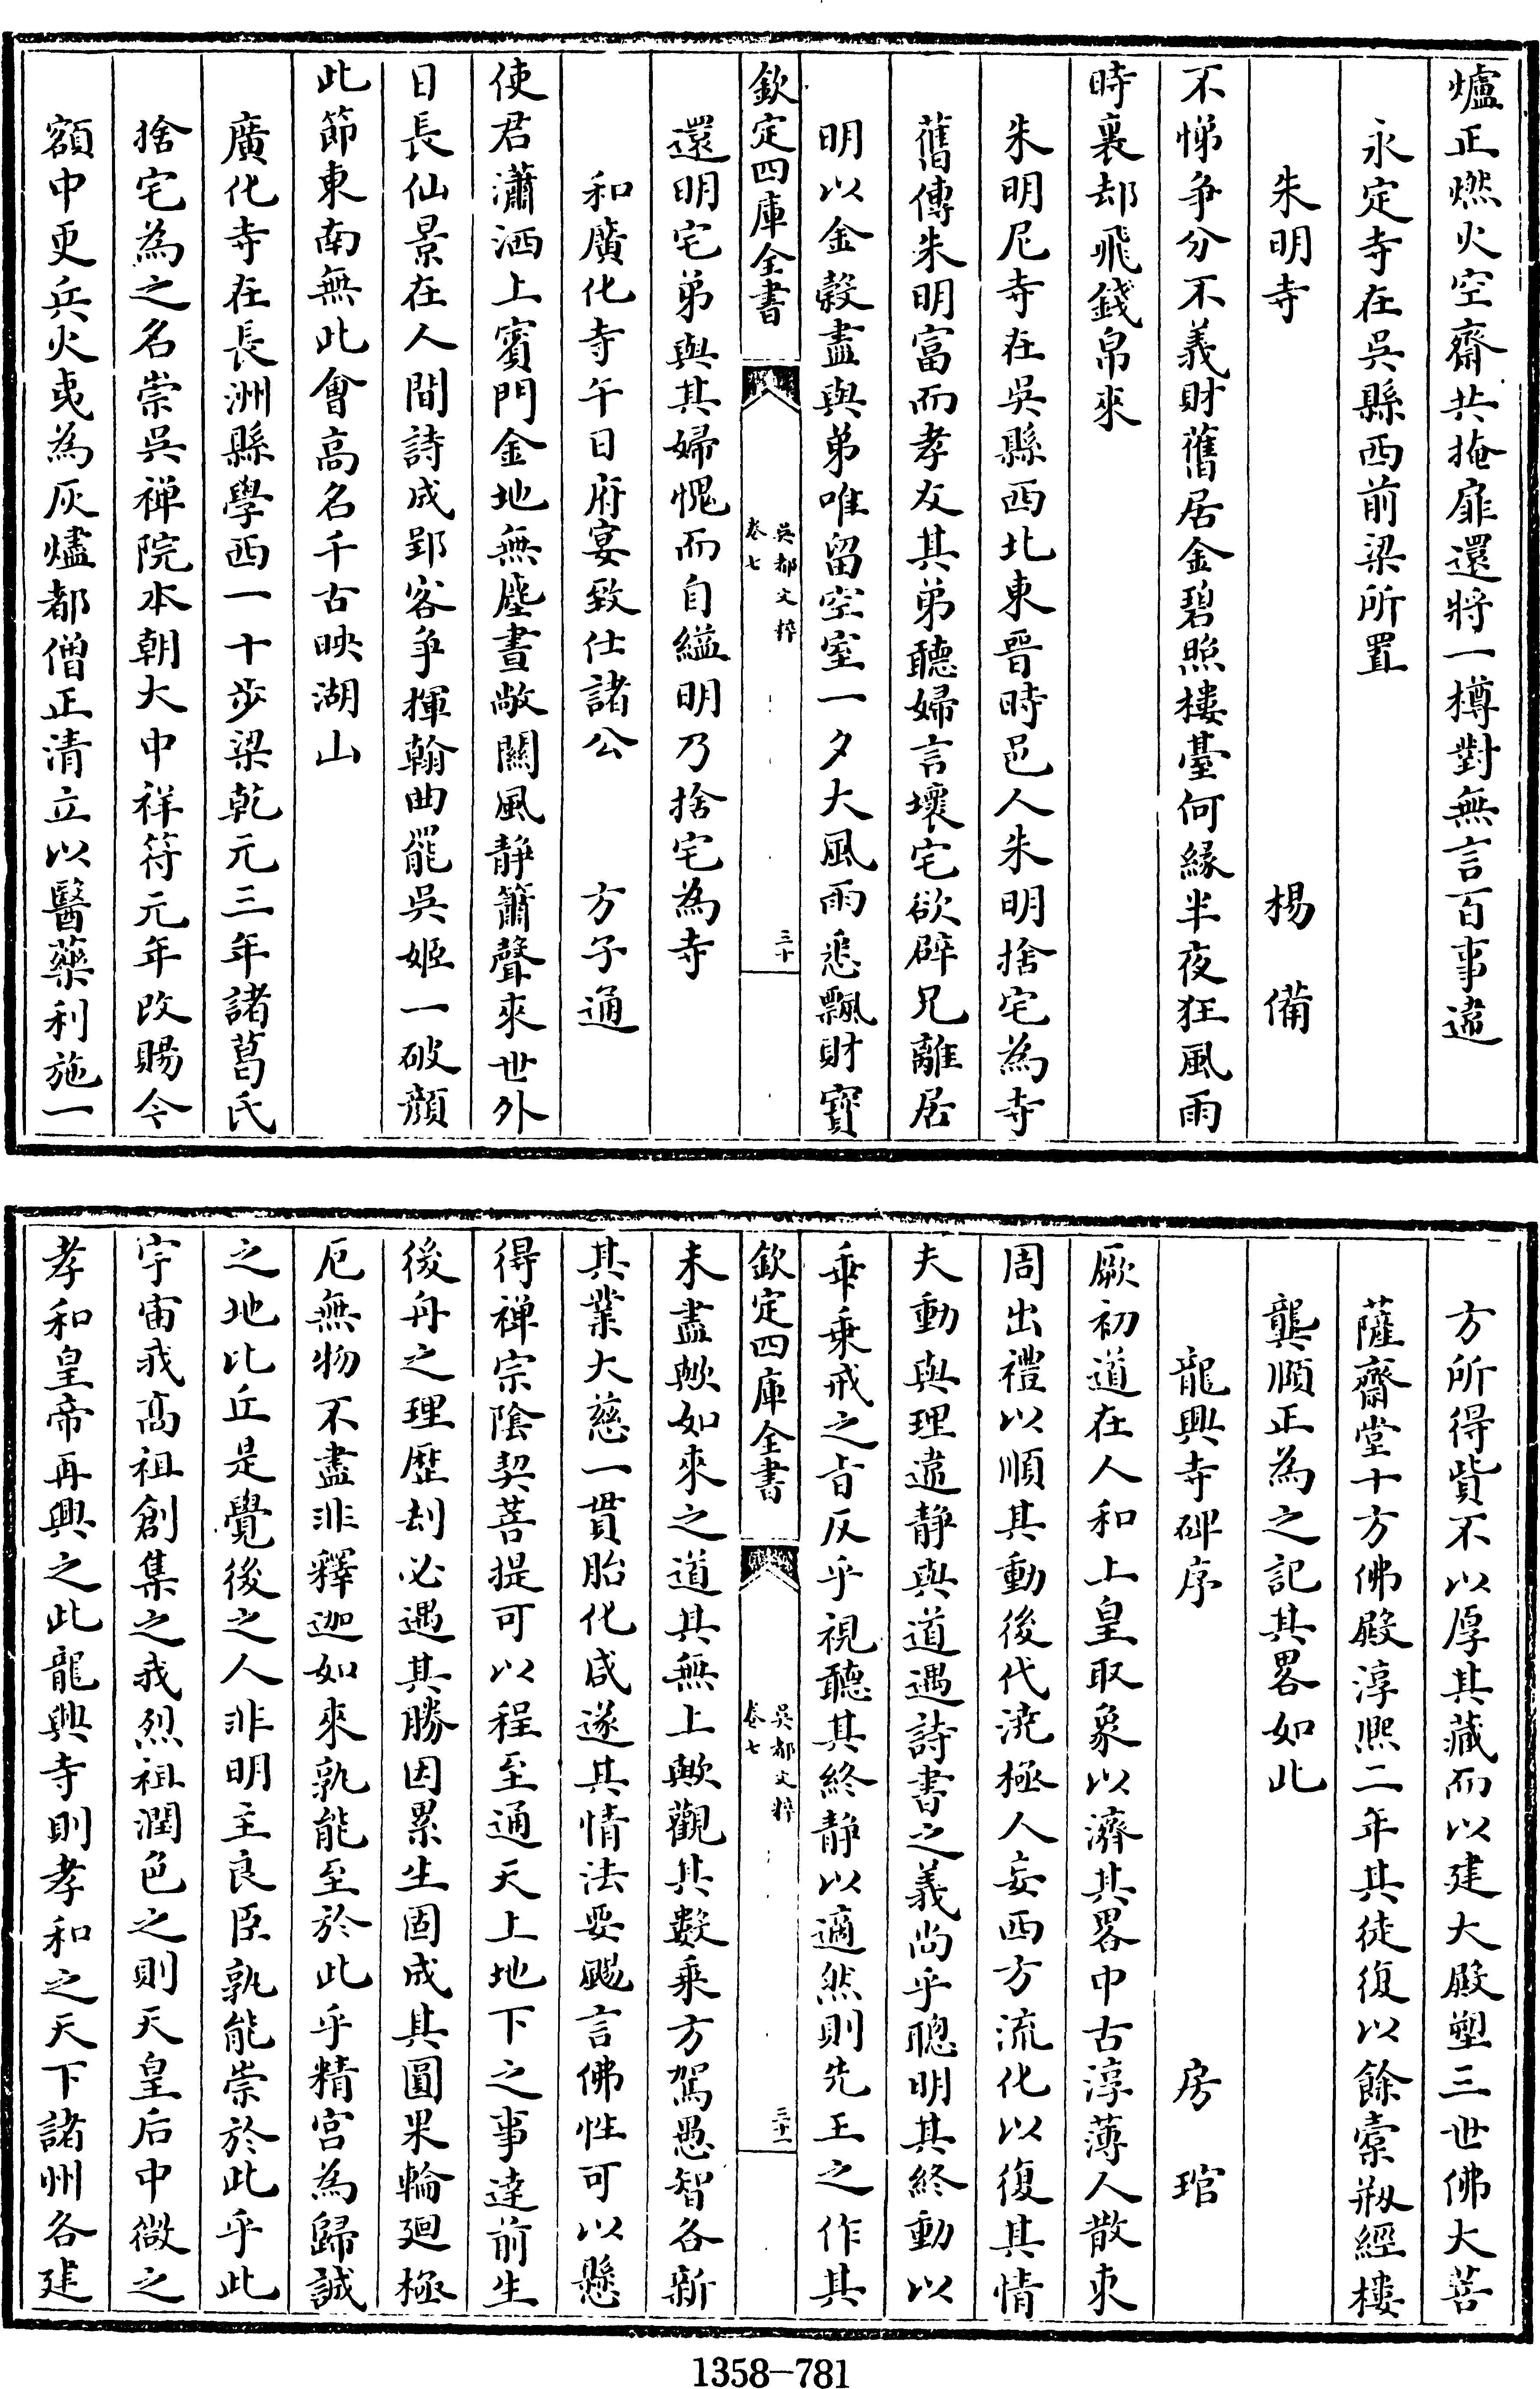 爐正燃火空齋共掩扉還將一樽對無言百事違
永定寺在吳縣西前梁所置
朱明寺　楊備
不悌爭分不義財舊居金碧照樓臺何緣半夜狂風雨
時裏却飛錢帛來
朱明尼寺在吳縣西北東晉時邑人朱明捨宅為寺
舊傳朱明富而孝友其弟聽婦言壞宅欲辟兄離居
明以金穀盡與弟唯留空室一夕大風雨悉飄財寶
欽定四庫全書　吳都文粹卷七　三十
還明宅弟與其婦愧而自縊明乃捨宅為寺
和廣化寺午日府宴致仕諸公　方子通
使君瀟洒上賓門金地無塵晝敞關風靜簫聲來世外
日長仙景在人間詩成郢客爭揮翰曲罷吳姬一破顏
此節東南無此會高名千古映湖山
廣化寺在長洲縣學西一十步梁乾元三年諸葛氏
捨宅為之名崇吳禅院本朝大中祥符元年改賜今
額中更兵火鞠為灰燼都僧正清立以醫藥利施一
方所得貲不以厚其藏而以建大殿塑三世佛大菩
薩齋堂十方佛殿淳熙二年其徒復以餘槖剏經樓
龔順正為之記其畧如此
龍興寺碑序　房琯
厥初道在人和上皇取象以濟其畧中古淳薄人散朿
周出禮以順其動後代澆極人妄西方流化以復其情
夫動與理違靜與道遇詩書之義尚乎聰明其終動以
乖乗戒之㫖反乎視聽其終靜以適然則先王之作其
欽定四庫全書　吳都文粹卷七　三十一
未盡歟如來之道其無上歟觀其數乗方駕愚智各新
其業大慈一貫胎化咸遂其情法要颺言佛性可以懸
得禅宗陰契菩提可以程至通天上地下之事達前生
後舟之理歷刼必遇其勝因累生固成其圓果輪廻極
厄無物不盡非釋迦如來孰能至於此乎精宫為歸誠
之地比丘是覺後之人非明主良臣孰能崇於此乎此
宇宙我高祖創集之我烈祖潤色之則天皇后中微之
孝和皇帝再興之此龍興寺則孝和之天下諸州各建
1358-781